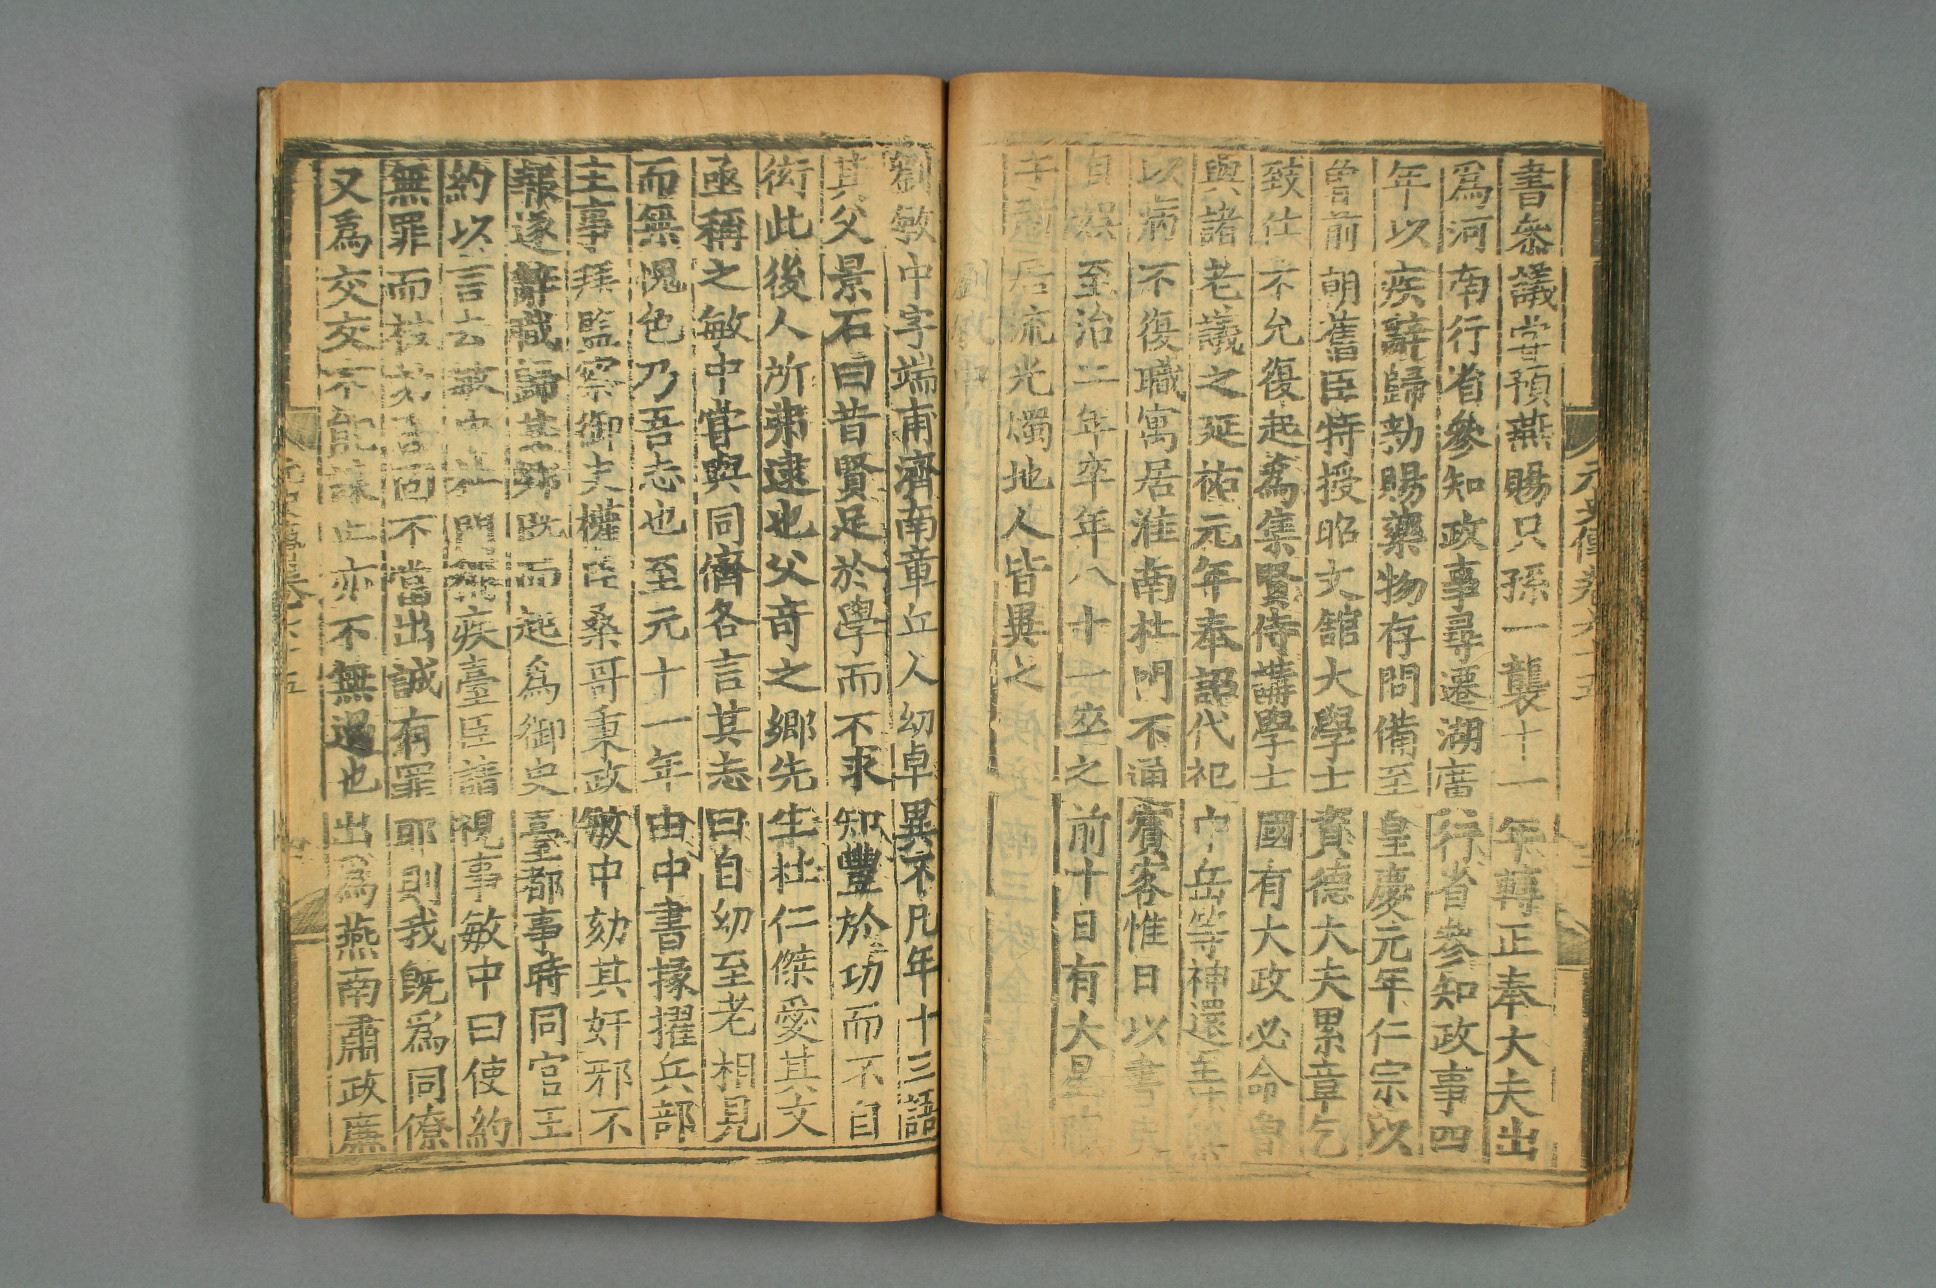 書參議尚書預燕賜只孫一襲十一年轉正奉大夫出
爲河南行省參知政事尋遷湖廣行省參知政事四
年以疾辭歸勑賜藥物存問備至皇慶元年仁宗以
魯前朝舊臣特授昭文館大學士資德大夫累章乞
致仕不允復起爲集賢侍講學士國有大政必命魯
與諸老議之延祐元年奉詔代祀中岳等神還至
以病不復職寓居淮南杜門不通賓客惟日以書史
自娛至治二年卒年八十一卒之前十日有大星
于所居流光燭地人皆異之
劉敏中
劉敏中字端甫濟南章丘人幼卓異不凡年十三語
其父景石曰昔賢足於學而不求知豐於功而不自
衒此後人所弗逮也父奇之鄉先生杜仁傑愛其文
亟稱之敏中甞與同儕各言其志曰自幼至老相見
而無愧色乃吾志也至元十一年由中書掾擢兵部
主事拜監察御史權臣桑哥秉政敏中劾其奸邪不
報遂辭職歸其鄉既而起爲御史臺都事時同官王
約以言去敏中杜門稱疾臺臣請視事敏中曰使約
無罪而被劾吾固不當出誠有罪耶則我既爲同僚
又爲交友不能諫止亦不無過也出爲燕南肅政廉
元史傳卷六十五